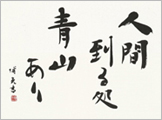 人間
到る処
青山
あり